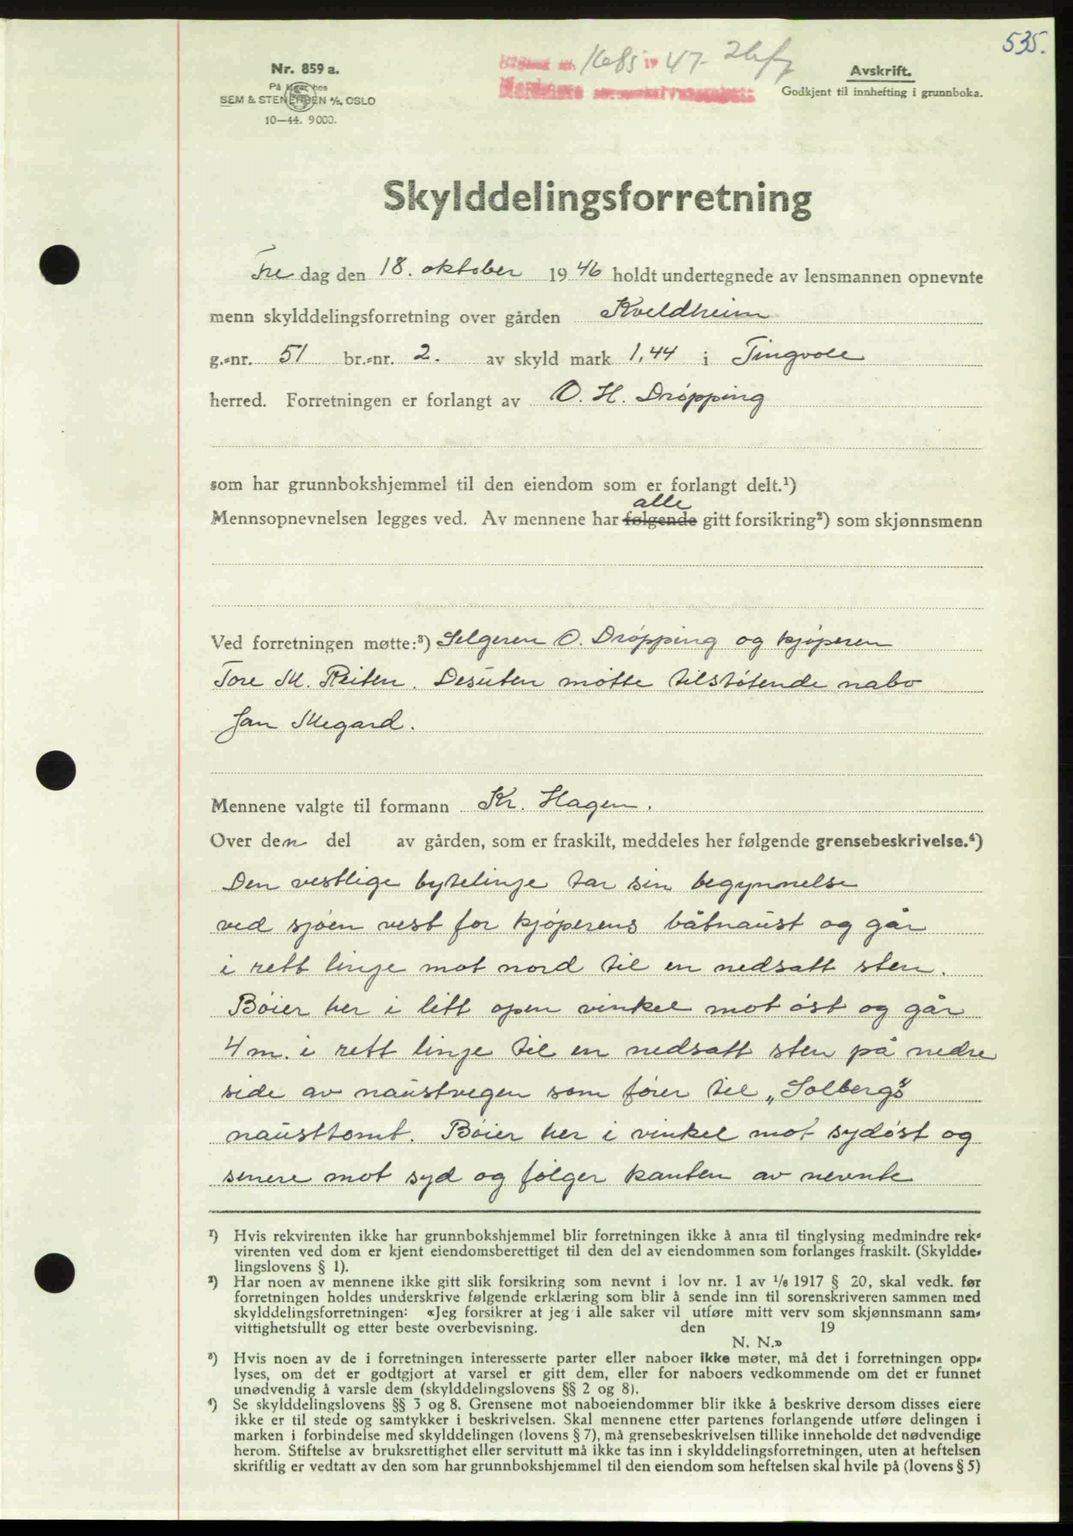 535.
Nr. 859 a.
På lager hos
SEM & STENERSEN A/S, OSLO
10—44. 9000.
1685 19 47 - 26/7
Avskrift.
Godkjent til innhefting i grunnboka.
Skylddelingsforretning
Fre dag den 18. oktober 1946 holdt undertegnede av lensmannen opnevnte
menn skylddelingsforretning over gården Kveldheim
g.-nr. 51 br.-nr. 2. av skyld mark 1,44 i Tingvoll
herred. Forretningen er forlangt av O. H. Dröpping
som har grunnbokshjemmel til den eiendom som er forlangt delt.¹)
alle
Mennsopnevnelsen legges ved. Av mennene har følgende gitt forsikring²) som skjønnsmenn
Ved forretningen møtte:³) Selgeren O. Dröpping og kjöperen
Tore M. Reiten. Desuten mötte tilstötende nabo
Jan Megard.
Mennene valgte til formann Kr. Hagen.
Over den del av gården, som er fraskilt, meddeles her følgende grensebeskrivelse.⁴)
Den vestlige bytelinje tar sin begynnelse
ved sjöen vest for kjöperens båtnaust og går
i rett linje mot nord til en nedsatt sten.
Böier her i litt open vinkel mot öst og går
4 m. i rett linje til en nedsatt sten på nedre
side av naustvegen som förer til „Solbergs"
nausttomt. Böier her i vinkel mot sydöst og
senere mot syd og fölger kanten av nevnte
¹) Hvis rekvirenten ikke har grunnbokshjemmel blir forretningen ikke å anta til tinglysing medmindre rek-
virenten ved dom er kjent eiendomsberettiget til den del av eiendommen som forlanges fraskilt. (Skyldde-
lingslovens § 1).
²) Har noen av mennene ikke gitt slik forsikring som nevnt i lov nr. 1 av 1/6 1917 § 20, skal vedk. før
forretningen holdes underskrive følgende erklæring som blir å sende inn til sorenskriveren sammen med
skylddelingsforretningen: «Jeg forsikrer at jeg i alle saker vil utføre mitt verv som skjønnsmann sam-
vittighetsfullt og etter beste overbevisning. den 19
N. N.»
³) Hvis noen av de i forretningen interesserte parter eller naboer ikke møter, må det i forretningen opp-
lyses, om det er godtgjort at varsel er gitt dem, eller for naboers vedkommende om det er funnet
unødvendig å varsle dem (skylddelingslovens §§ 2 og 8).
⁴) Se skylddelingslovens §§ 3 og 8. Grensene mot naboeiendommer blir ikke å beskrive dersom disses eiere
ikke er til stede og samtykker i beskrivelsen. Skal mennene etter partenes forlangende utføre delingen i
marken i forbindelse med skylddelingen (lovens § 7), må grensebeskrivelsen tillike inneholde det nødvendige
herom. Stiftelse av bruksrettighet eller servitutt må ikke tas inn i skylddelingsforretningen, uten at heftelsen
skriftlig er vedtatt av den som har grunnbokshjemmel til den eiendom som heftelsen skal hvile på (lovens § 5)